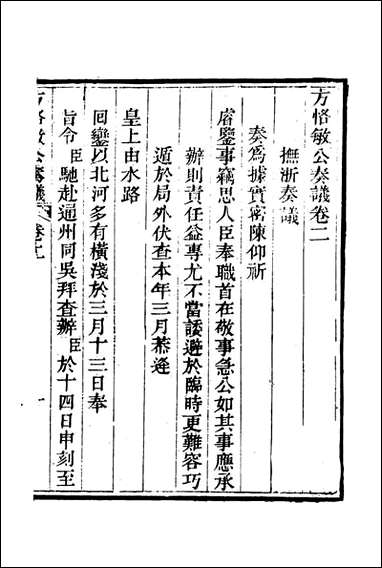 方恪敏公奏議卷二
撫浙奏議
奏爲據實密陳仰祈
睿鑒事竊思人臣奉職首在敬事急公如其事應承
辦則責任益專尤不當諉避於臨時更難容巧
遁於局外伏查本年三月恭逢
皇上由水路
回鑾以北河多有橫淺於三月十三日奉
旨令臣馳赴通州同吳拜查辦臣於十四日申刻至
方恪敏公奏議 卷二 一